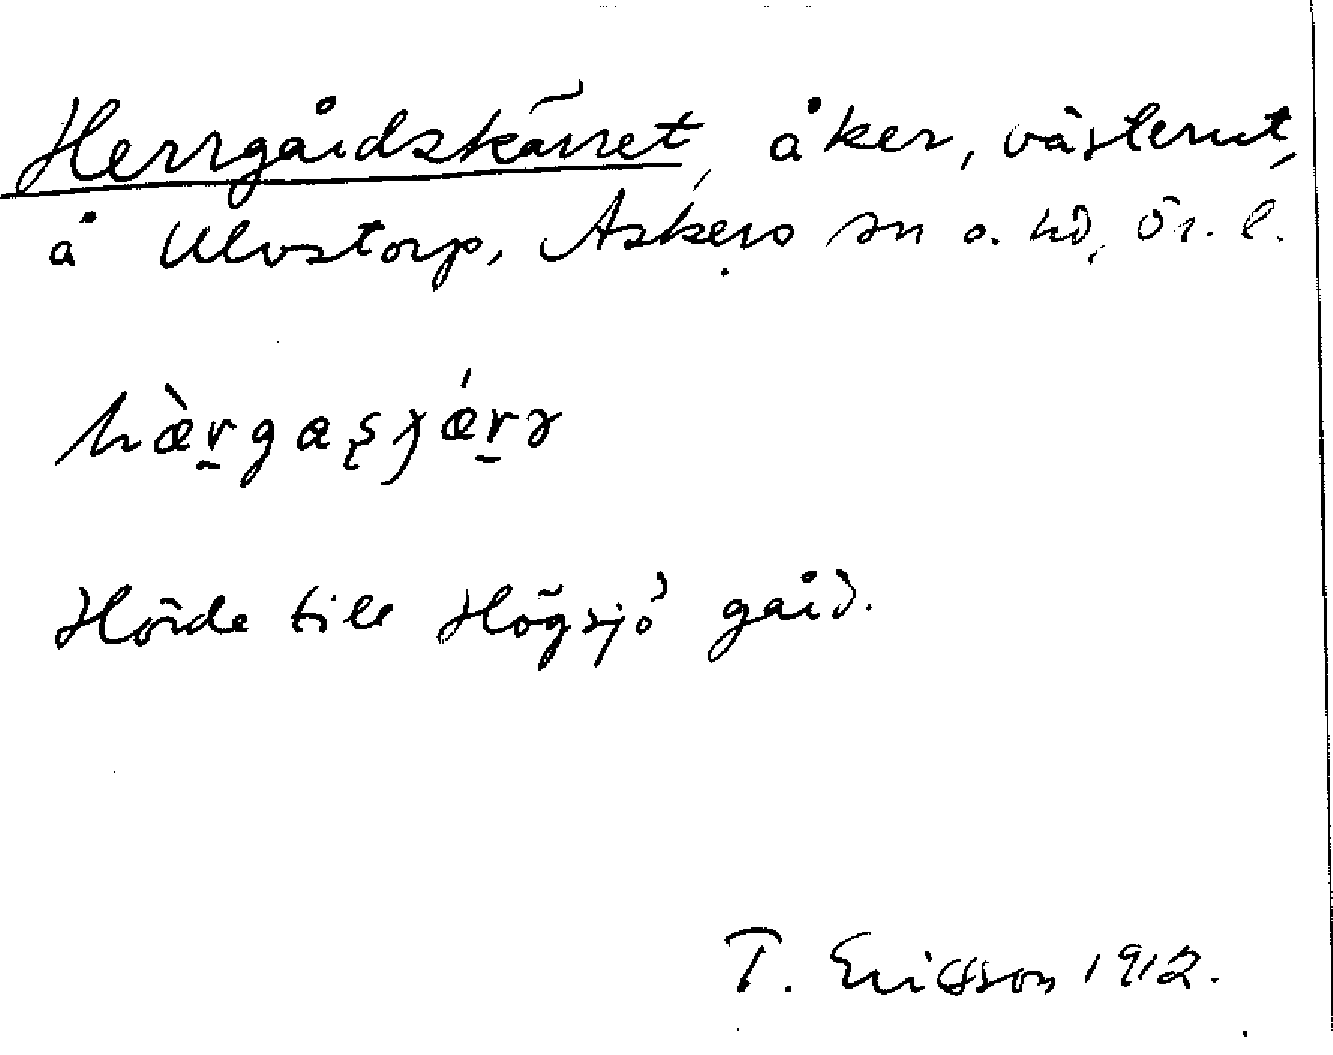 Herrgårdskärret, åker, västerut,
å Ulvstorp, Askers sn o. hd, Ör. l.
hæ̀r̠gaşɟǽr̠ə
Hörde till Högsjö gård.
T. Ericsson 1912.